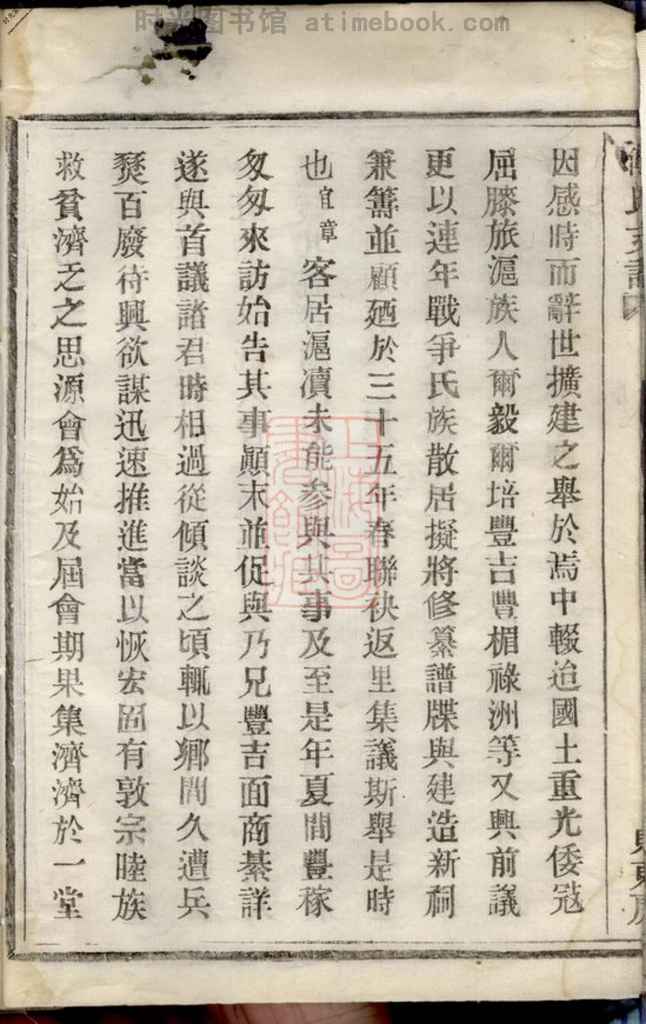 时光图书馆 atimebook.com
因感時而辭世擴建之舉於焉中輟迨國土重光倭寇
屈膝旅滬族人爾毅爾培豐吉豐楣祿洲等又興前議
更以連年戰爭氏族散居擬將修纂譜牒與建造新祠
兼籌並顧廼於三十五年春聯袂返里集議斯舉是時
也宜章客居滬瀆未能參與其事及至是年夏間豐稼
匆匆來訪始告其事顛末並促與乃兄豐吉面商綦詳
遂與首議諸君時相過從傾談之頃輒以鄉閭久遭兵
燹百廢待興欲謀迅速推進當以恢宏固有敦宗睦族
救貧濟乏之思源會爲始及屆會期果集濟濟於一堂
上海圖書館藏